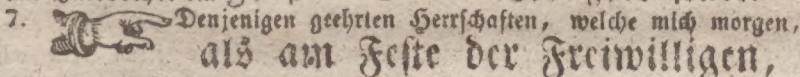 7. ☞ Denjenigen geehrten Herrſchaften, welche mich morgen,
als am Feſte der Freiwilligen,